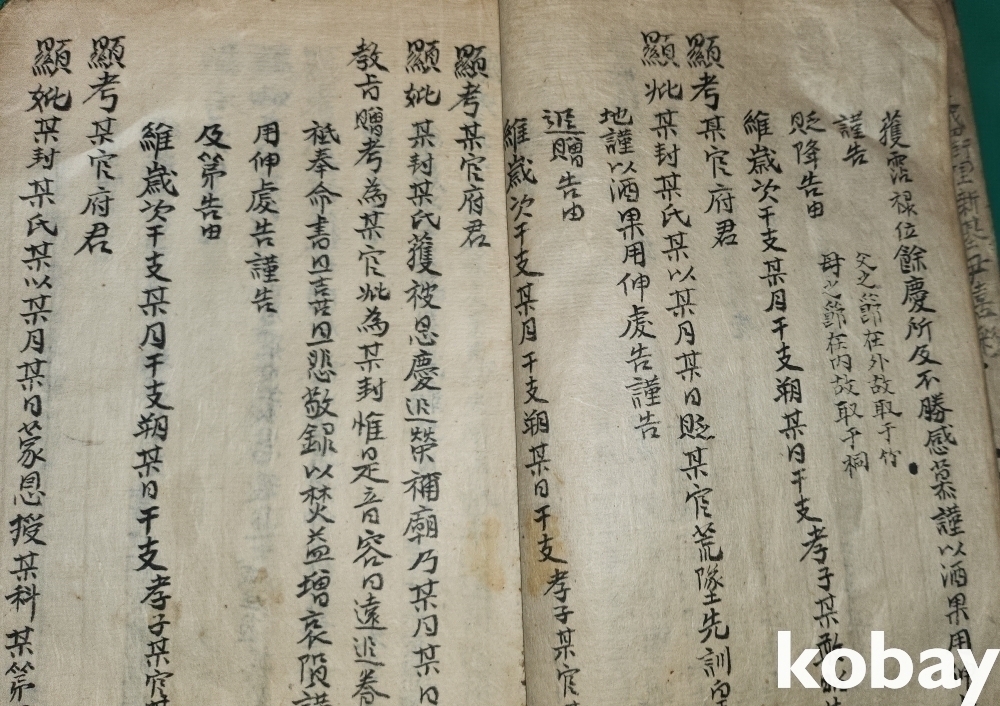 獲霑祿位餘慶所及不勝感慕謹以酒果用伸
謹告
父之節在外故取于竹
母之節在內故取于桐
貶降告由
維歲次干支某月干支朔某日干支孝子某
顯考某官府君
顯妣某封某氏某以某月某日貶某官荒墜先訓皇
地謹以酒果用伸虔告謹告
追贈告由
維歲次干支某月干支朔某日干支孝子某官
顯考某官府君
顯妣某封某氏獲被恩慶追榮禰廟乃某月某日
教旨贈考為某官妣為某封惟是音容日遠追養
祗奉命書且喜且悲敬錄以焚益增哀隕謹
用伸虔告謹告
及第告由
維歲次干支某月干支朔某日干支孝子某官某
顯考某官府君
顯妣某封某氏某以某月某日蒙恩授某科某第
kobay